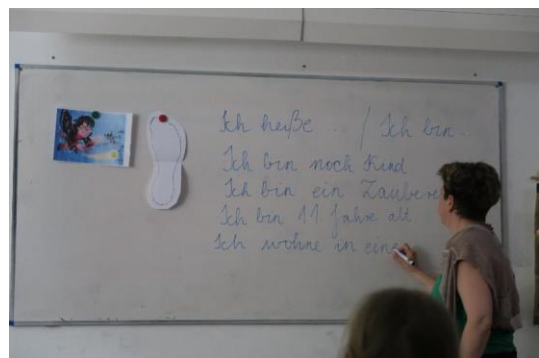 Ich heiße ... / Ich bin ..
Ich bin noch Kind
Ich bin ein Zaubere
Ich bin 11 Jahre alt
Ich wohne in eine